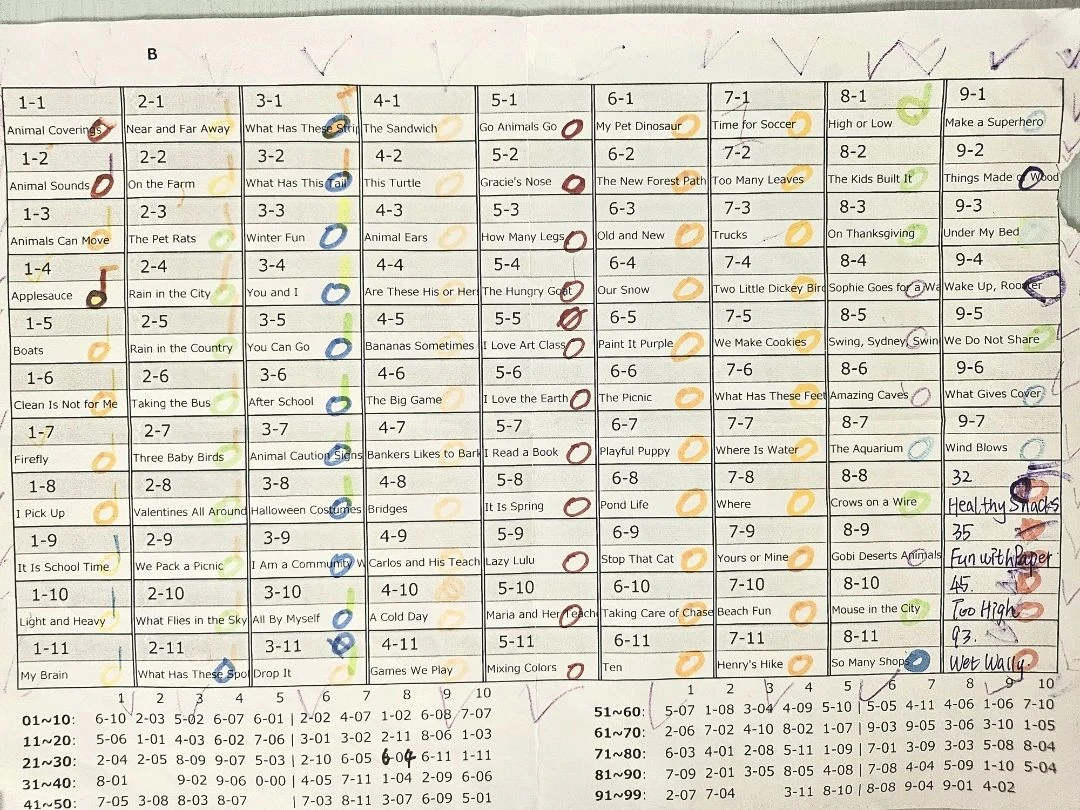 B
1-1 2-1 3-1 4-1 5-1 6-1 7-1 8-1 9-1
Animal Coverings Near and Far Away What Has These Strip The Sandwich Go Animals Go My Pet Dinosaur Time for Soccer High or Low Make a Superhero
1-2 2-2 3-2 4-2 5-2 6-2 7-2 8-2 9-2
Animal Sounds On the Farm What Has This Tail This Turtle Gracie's Nose The New Forest Path Too Many Leaves The Kids Built It Things Made of Wood
1-3 2-3 3-3 4-3 5-3 6-3 7-3 8-3 9-3
Animals Can Move The Pet Rats Winter Fun Animal Ears How Many Legs Old and New Trucks On Thanksgiving Under My Bed
1-4 2-4 3-4 4-4 5-4 6-4 7-4 8-4 9-4
Applesauce Rain in the City You and I Are These His or Her The Hungry Goat Our Snow Two Little Dickey Bird Sophie Goes for a Wa Wake Up, Rooster
1-5 2-5 3-5 4-5 5-5 6-5 7-5 8-5 9-5
Boats Rain in the Country You Can Go Bananas Sometimes I Love Art Class Paint It Purple We Make Cookies Swing, Sydney, Swin We Do Not Share
1-6 2-6 3-6 4-6 5-6 6-6 7-6 8-6 9-6
Clean Is Not for Me Taking the Bus After School The Big Game I Love the Earth The Picnic What Has These Feet Amazing Caves What Gives Cover
1-7 2-7 3-7 4-7 5-7 6-7 7-7 8-7 9-7
Firefly Three Baby Birds Animal Caution Signs Bankers Likes to Bark I Read a Book Playful Puppy Where Is Water The Aquarium Wind Blows
1-8 2-8 3-8 4-8 5-8 6-8 7-8 8-8 32
I Pick Up Valentines All Around Halloween Costumes Bridges It Is Spring Pond Life Where Crows on a Wire Healthy Snacks
1-9 2-9 3-9 4-9 5-9 6-9 7-9 8-9 35
It Is School Time We Pack a Picnic I Am a Community W Carlos and His Teach Lazy Lulu Stop That Cat Yours or Mine Gobi Deserts Animals Fun with Paper
1-10 2-10 3-10 4-10 5-10 6-10 7-10 8-10 45.
Light and Heavy What Flies in the Sky All By Myself A Cold Day Maria and Her Teache Taking Care of Chase Beach Fun Mouse in the City Too High
1-11 2-11 3-11 4-11 5-11 6-11 7-11 8-11 93.
My Brain What Has These Spot Drop It Games We Play Mixing Colors Ten Henry's Hike So Many Shops Wet Wally.
1 2 3 4 5 6 7 8 9 10 1 2 3 4 5 6 7 8 9 10
01~10: 6-10 2-03 5-02 6-07 6-01 | 2-02 4-07 1-02 6-08 7-07 51~60: 5-07 1-08 3-04 4-09 5-10 | 5-05 4-11 4-06 1-06 7-10
11~20: 5-06 1-01 4-03 6-02 7-06 | 3-01 3-02 2-11 8-06 1-03 61~70: 2-06 7-02 4-10 8-02 1-07 | 9-03 9-05 3-06 3-10 1-05
21~30: 2-04 2-05 8-09 9-07 5-03 | 2-10 6-05 6-04 6-11 1-11 71~80: 6-03 4-01 2-08 5-11 1-09 | 7-01 3-09 3-03 5-08 8-04
31~40: 8-01 9-02 9-06 0-00 | 4-05 7-11 1-04 2-09 6-06 81~90: 7-09 2-01 3-05 8-05 4-08 | 7-08 4-04 5-09 1-10 5-04
41~50: 7-05 3-08 8-03 8-07 | 7-03 8-11 3-07 6-09 5-01 91~99: 2-07 7-04 3-11 8-10 | 8-08 9-04 9-01 4-02